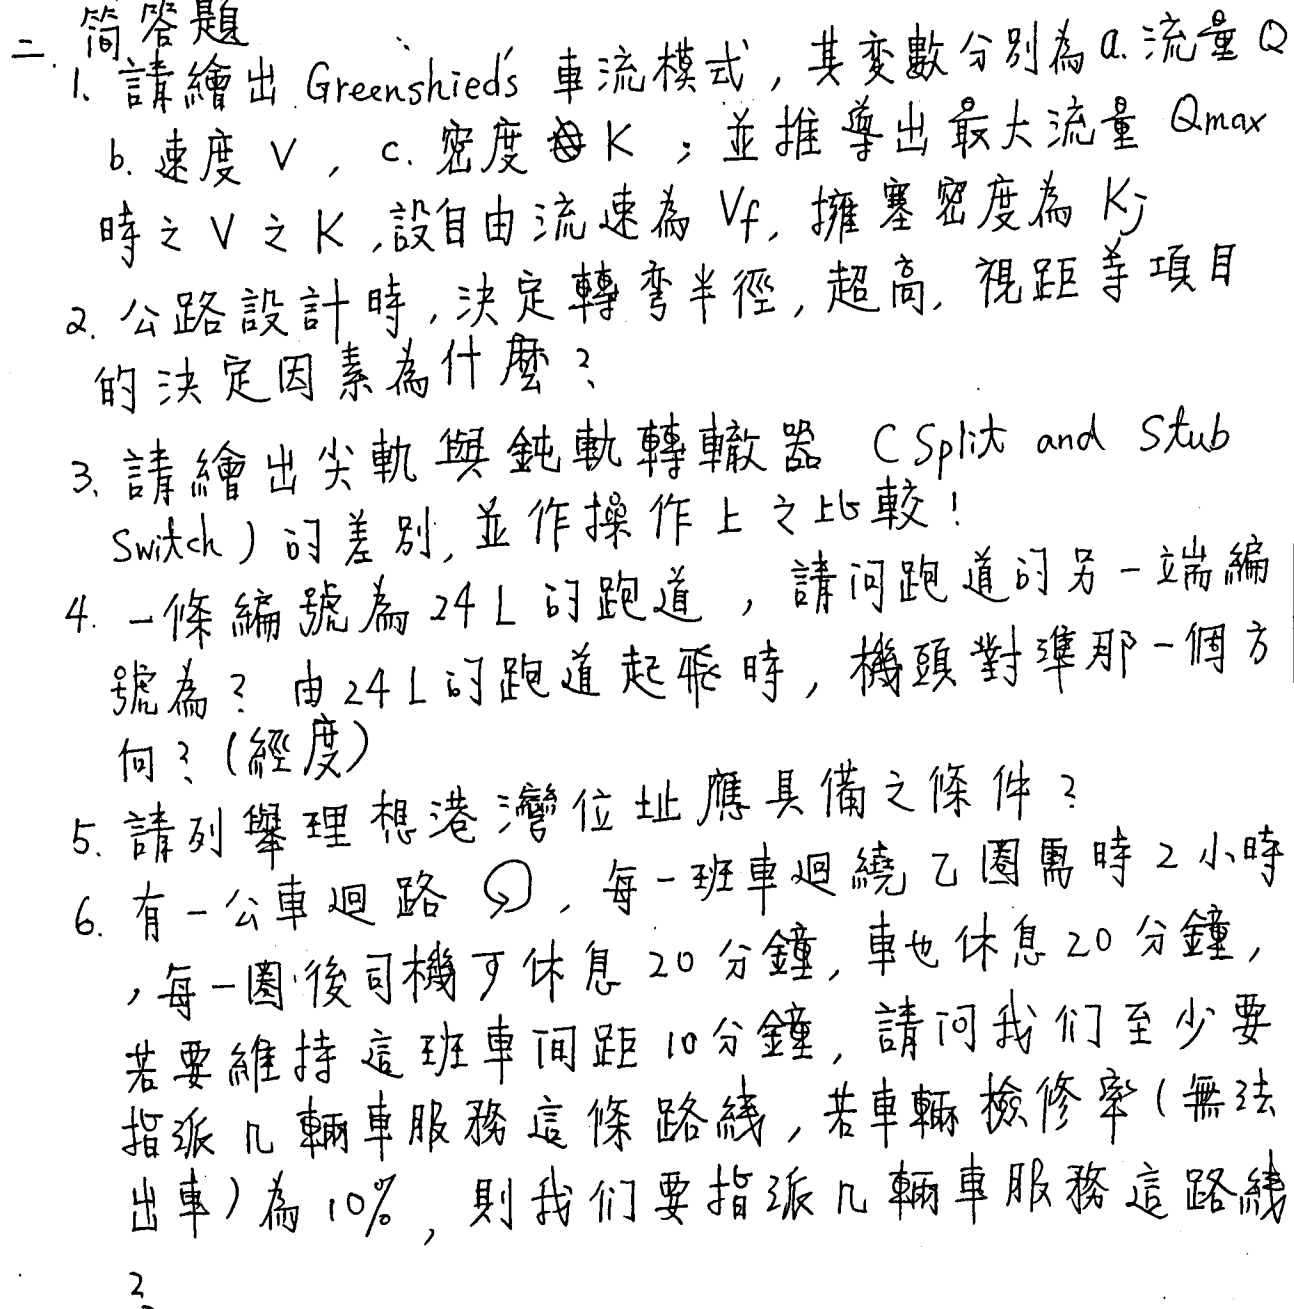 二. 简答題
1. 請繪出 Greenshied's 車流模式，其変數分別為 a. 流量 Q
b. 速度 V ，c. 密度 K ；並推導出最大流量 Qmax
時之 V 之 K ,設自由流速為 Vf, 擁塞密度為 Kj
2. 公路設計時,決定轉弯半徑,超高,視距等項目
的決定因素為什麼?
3. 請繪出尖軌與鈍軌轉轍器 (Split and Stub
Switch) 的差別,並作操作上之比較!
4. 一條編號為 24L 的跑道，請问跑道的另一端編
號為? 由 24L 的跑道起飛時，機頭對準那一個方
向? (經度)
5. 請列舉理想港灣位址應具備之條件?
6. 有一公車迴路 , 每一班車迴繞乙圈需時 2 小時
，每一圈後司機可休息 20 分鐘, 車也休息 20 分鐘,
若要維持這班車间距 10 分鐘, 請问我们至少要
指派几輛車服務這條路綫, 若車輛檢修率(無法
出車)為 10% , 則我们要指派几輛車服務這路綫
?